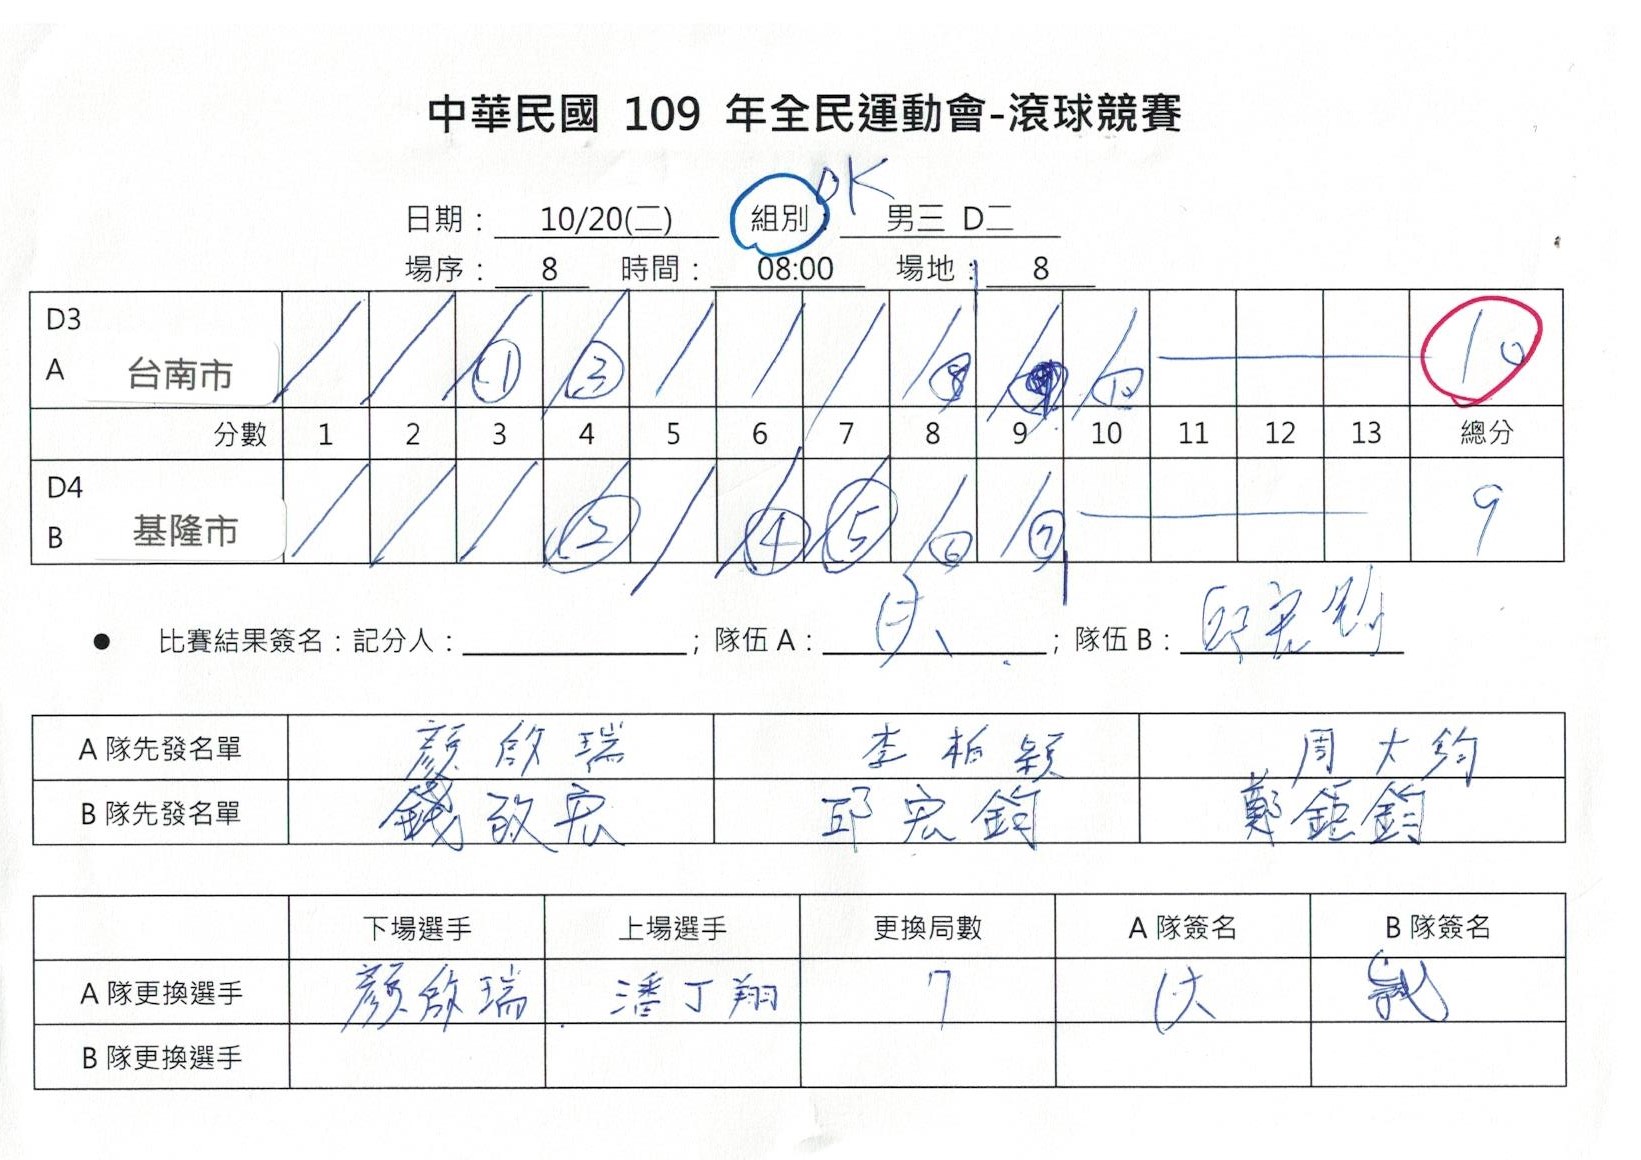 中華民國 109 年全民運動會-滾球競賽
OK
日期： 10/20(二) 組別： 男三 D二
場序： 8 時間： 08:00 場地： 8
D3
A 台南市 / / /① /③ / / / /⑧ /⑨ /⑩ 10
分數 1 2 3 4 5 6 7 8 9 10 11 12 13 總分
D4
B 基隆市 / / / /② / /④ /⑤ /⑥ /⑦ 9
● 比賽結果簽名：記分人： ；隊伍 A： ；隊伍 B： 邱宏鈞
A 隊先發名單 顏啟瑞 李柏穎 周大鈞
B 隊先發名單 錢政宏 邱宏鈞 鄭鉅鈞
下場選手 上場選手 更換局數 A 隊簽名 B 隊簽名
A 隊更換選手 顏啟瑞 潘丁翔 7
B 隊更換選手